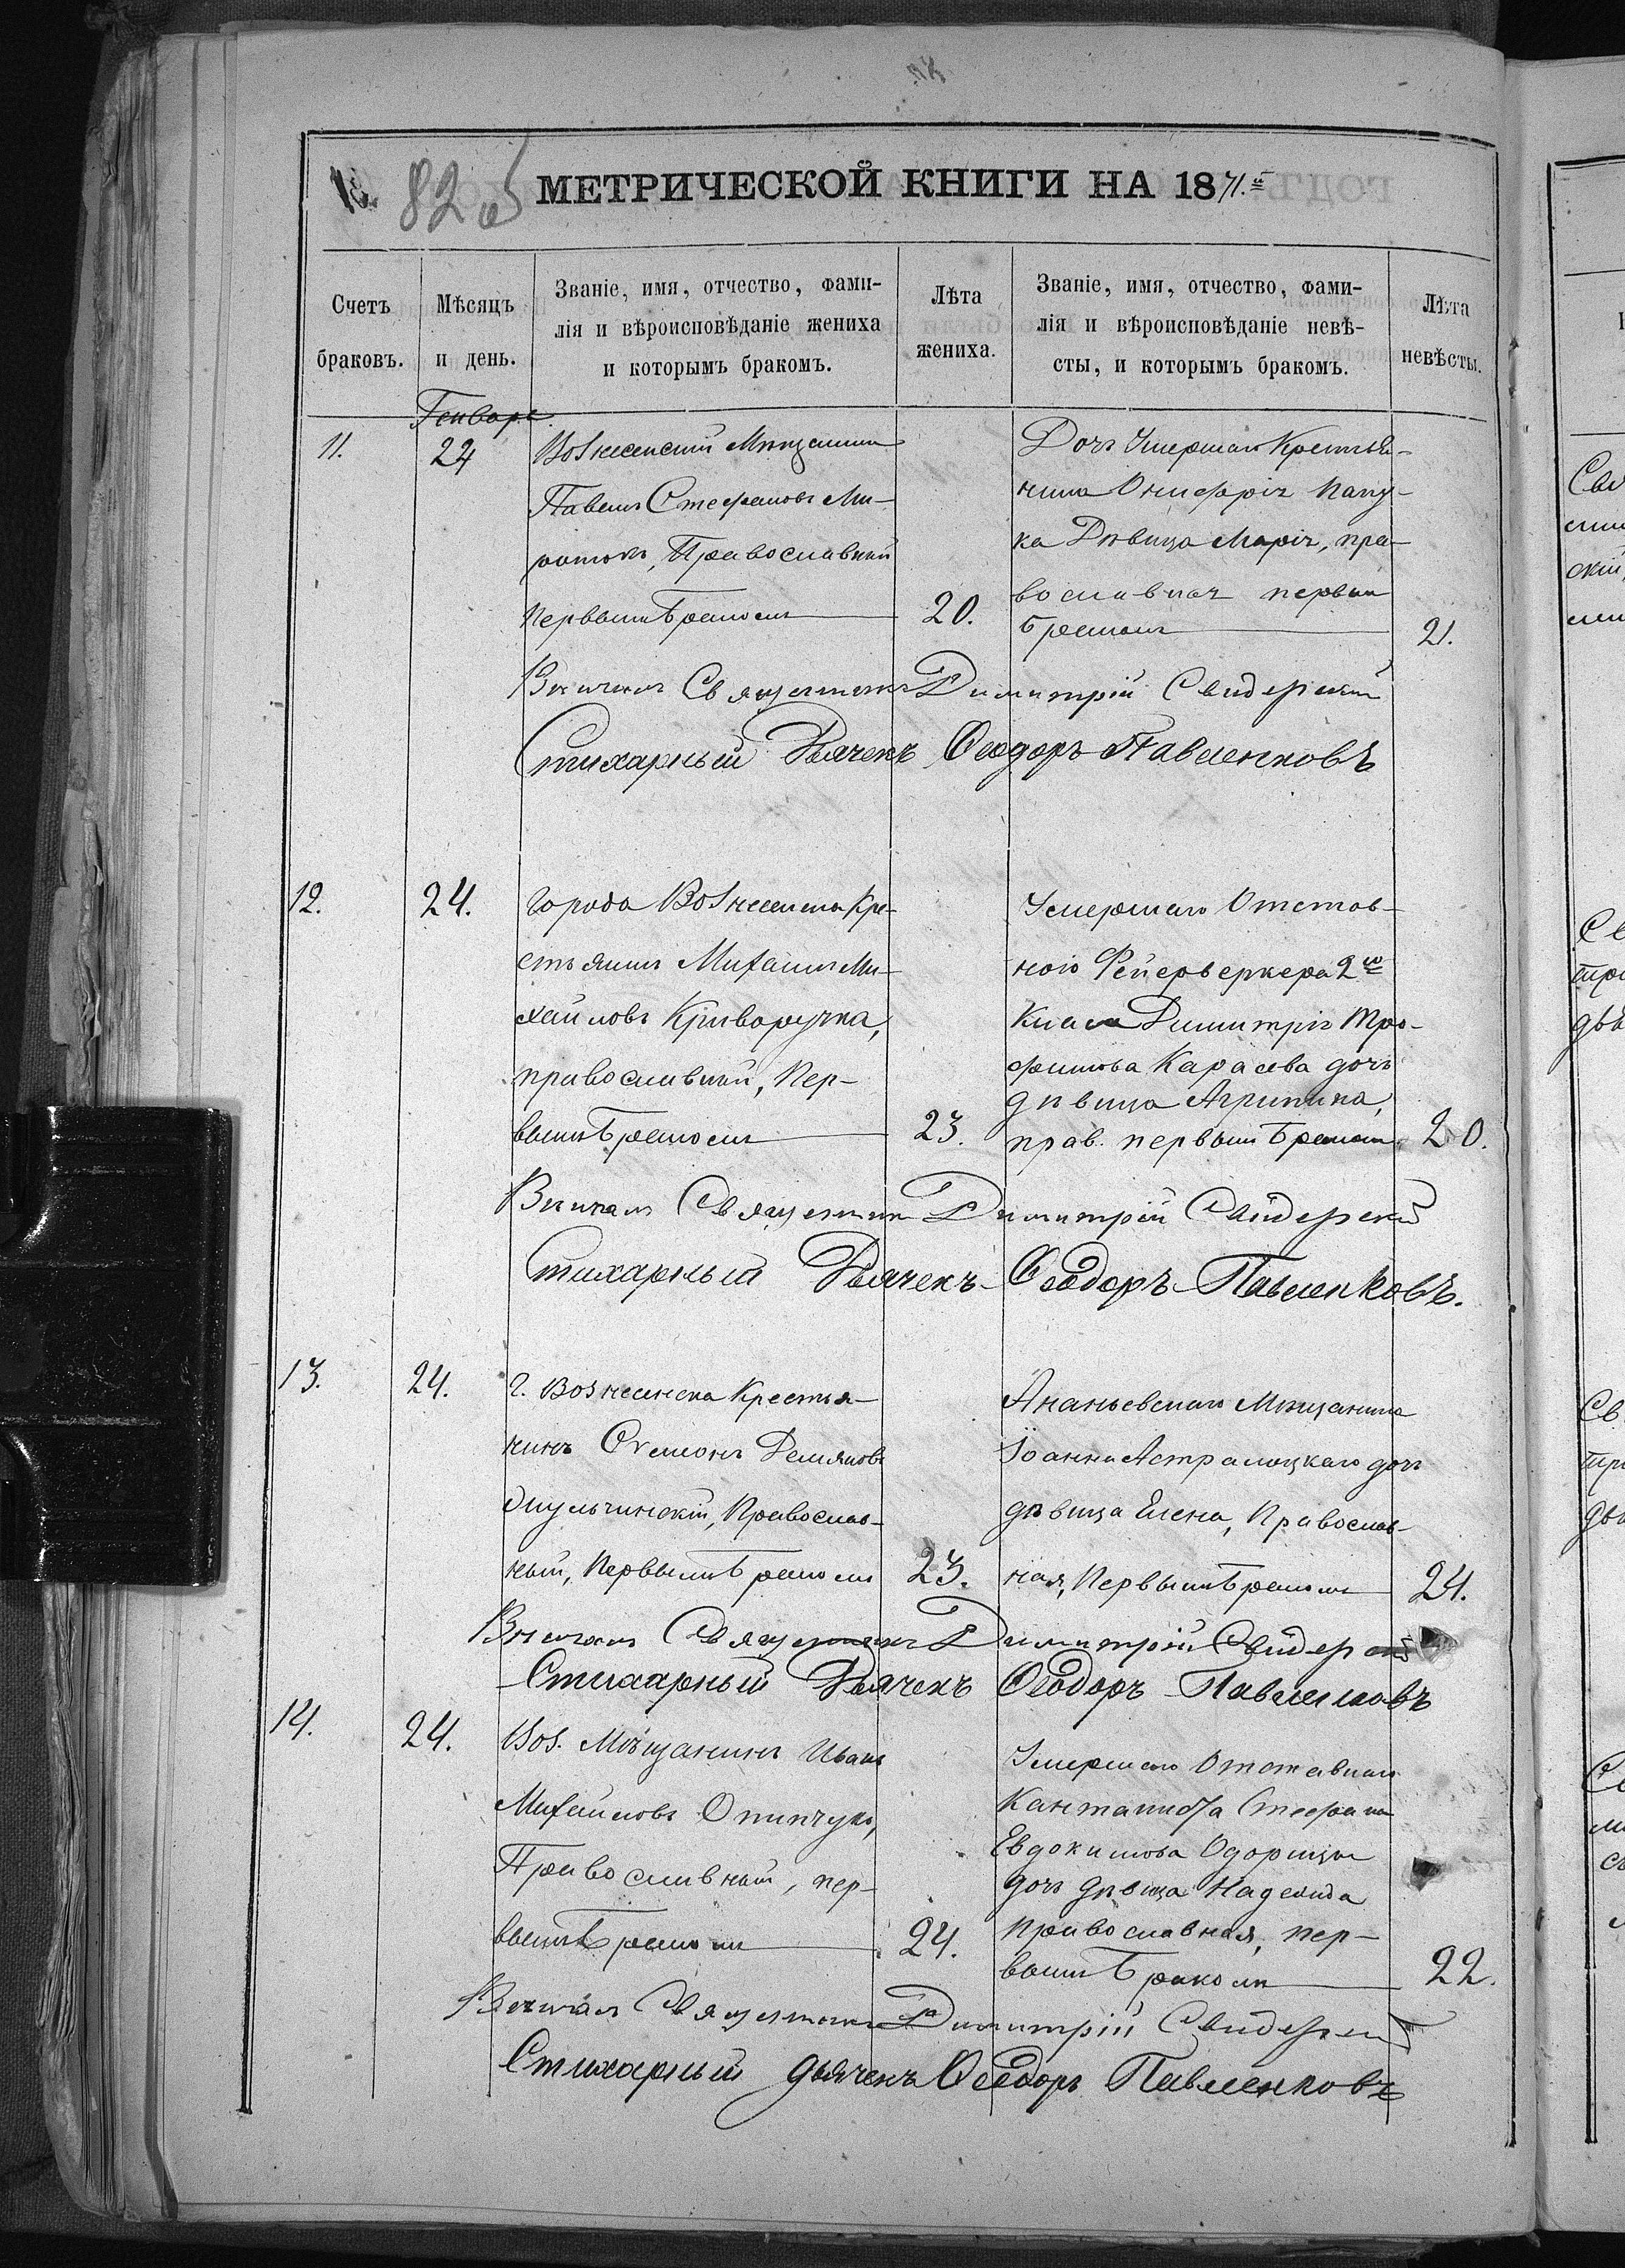 82 об
МЕТРИЧЕСКОЙ КНИГИ НА 1871.й
Счетъ браковъ.
Мѣсяцъ и день.
Званіе, имя, отчество, фами-
лія и вѣроисповѣданіе жениха
и которымъ бракомъ.
Лѣта жениха.
Званіе, имя, отчество, фами-
лія и вѣроисповѣданіе невѣ-
сты, и которымъ бракомъ.
Лѣта невѣсты.
Генваре
11.
24
Вознесенскій Мѣщанинъ
Павелъ Стефановъ
Православный
первымъ бракомъ
20.
Дочь Умершаго Крестья-
нина Онифрія
Дѣвица Марія, пра-
вославная первым
бракомъ
21.
Вѣнчалъ Священникъ Димитрій Свидерскій
Стихарный Дьячекъ Феодоръ Павленковъ
12.
24.
Города Вознесенска Кре-
стьянинъ Михаилъ Ми-
хайловъ Криворучка,
православный, Пер-
вымъ бракомъ
23.
Умершаго Отстав-
ного Фейерверкера 2го
Класа Димитрія Тро-
фимова Карасева дочь
дѣвица Агрипина,
прав. первымъ бракомъ.
20.
Вѣнчалъ Священник Димитрій Свидерскій
Стихарный Дьячекъ Феодоръ Павленковъ.
13.
24.
г. Вознесенска Крестья-
нинъ Семеонъ Демяновъ
Православ-
ный, Первымъ бракомъ
23.
Ананьевскаго Мѣщанина
Іоанна дочь
дѣвица Елена, Православ-
ная, Первымъ бракомъ
24.
Вѣнчалъ Священникъ Димитрій Свидерскій
Стихарный Дьячекъ Феодоръ Павленковъ
14.
24.
Воз. Мѣщанинъ Иванъ
Михайловъ
Православный, пер-
вымъ бракомъ
24.
Умершаго Отставнаго
Стефана
Евдокимова
дочь дѣвица Надежда
Православная, пер-
вымъ бракомъ
22.
Вѣнчалъ Священникъ Димитрій Свидерскій
Стихарный дьячекъ Феодоръ Павленковъ